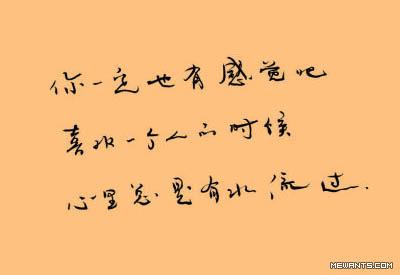 你一定也有感觉吧
喜欢一个人的时候
心里总是有水流过.
MEWANTS.COM